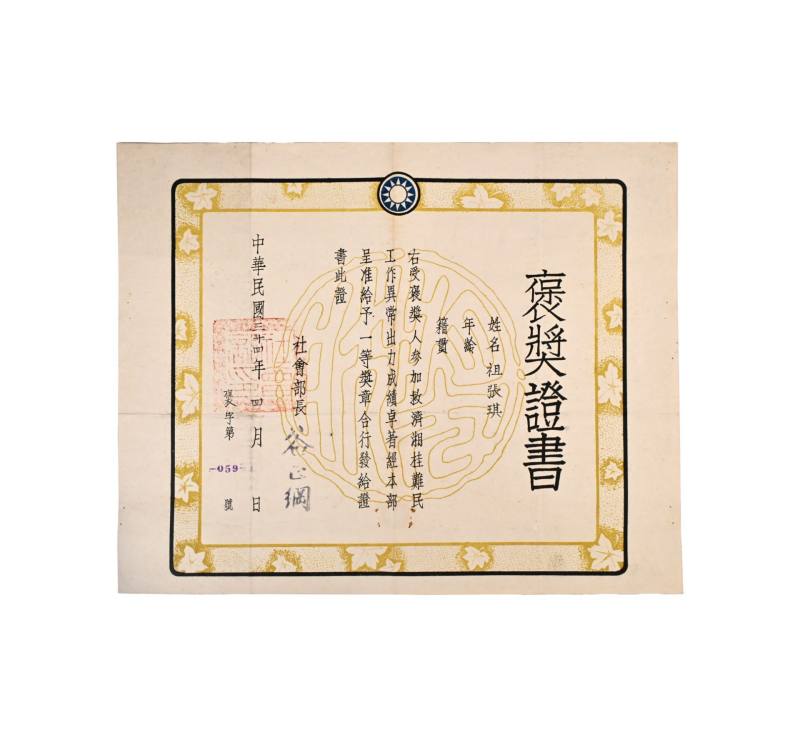 褒獎證書
姓名 祖張琪
年齡
籍貫
右受褒獎人參加救濟湘桂難民
工作異常出力成績卓著經本部
呈准給予一等獎章合行發給證
書此證
社會部長 谷正綱
中華民國三十四年四月 日
褒字第-059-號